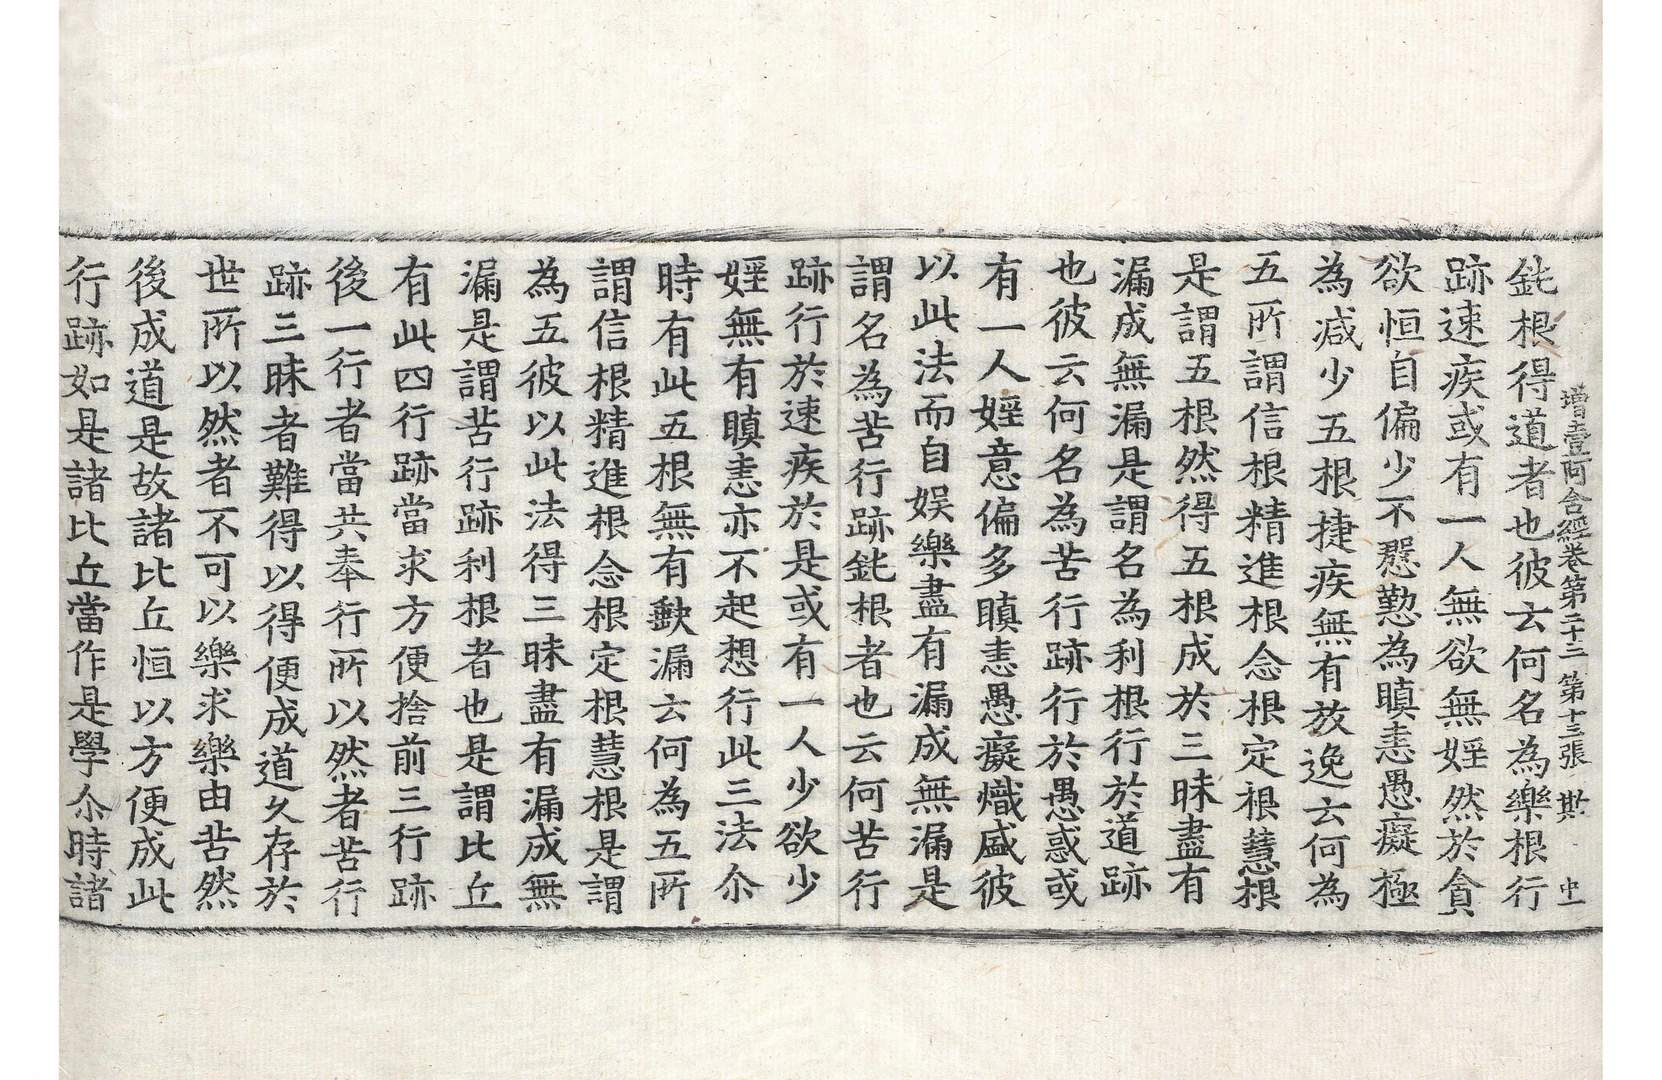 增壹阿含經卷第二十三 第十三張 斯
鈍根得道者也彼云何名為樂根行
跡速疾或有一人無欲無婬然於貪
欲恒自偏少不慇懃為瞋恚愚癡極
為減少五根捷疾無有放逸云何為
五所謂信根精進根念根定根慧根
是謂五根然得五根成於三昧盡有
漏成無漏是謂名為利根行於道跡
也彼云何名為苦行跡行於愚惑或
有一人婬意偏多瞋恚愚癡熾盛彼
以此法而自娛樂盡有漏成無漏是
謂名為苦行跡鈍根者也云何苦行
跡行於速疾於是或有一人少欲少
婬無有瞋恚亦不起想行此三法尒
時有此五根無有缺漏云何為五所
謂信根精進根念根定根慧根是謂
為五彼以此法得三昧盡有漏成無
漏是謂苦行跡利根者也是謂比丘
有此四行跡當求方便捨前三行跡
後一行者當共奉行所以然者苦行
跡三昧者難得以得便成道久存於
世所以然者不可以樂求樂由苦然
後成道是故諸比丘恒以方便成此
行跡如是諸比丘當作是學尒時諸